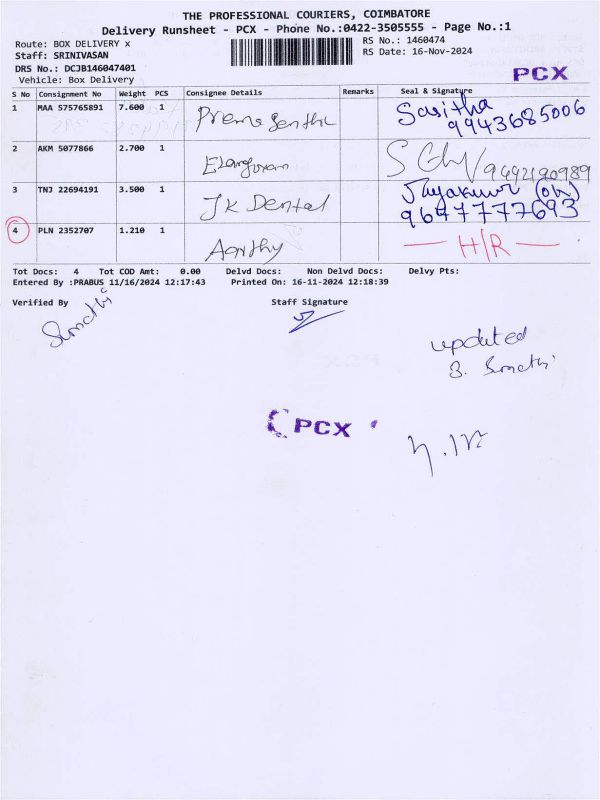 THE PROFESSIONAL COURIERS, COIMBATORE
Delivery Runsheet - PCX - Phone No.:0422-3505555 - Page No.:1
Route: BOX DELIVERY x
RS No.: 1460474
Staff: SRINIVASAN
RS Date: 16-Nov-2024
DRS No.: DCJB146047401
Vehicle: Box Delivery
PCX
S No Consignment No Weight PCS Consignee Details Remarks Seal & Signature
1 MAA 575765891 7.600 1 Prema Senthil Saritha
9943685006
2 AKM 5077866 2.700 1 Elangovan 9492190989
3 TNJ 22694191 3.500 1 JK Dental Jayakumar
9647777693
4 PLN 2352707 1.210 1 Aarthy H/R
Tot Docs: 4 Tot COD Amt: 0.00 Delvd Docs: Non Delvd Docs: Delvy Pts:
Entered By :PRABUS 11/16/2024 12:17:43 Printed On: 16-11-2024 12:18:39
Verified By Staff Signature
Sumathi
updated
S. Sumathi
PCX